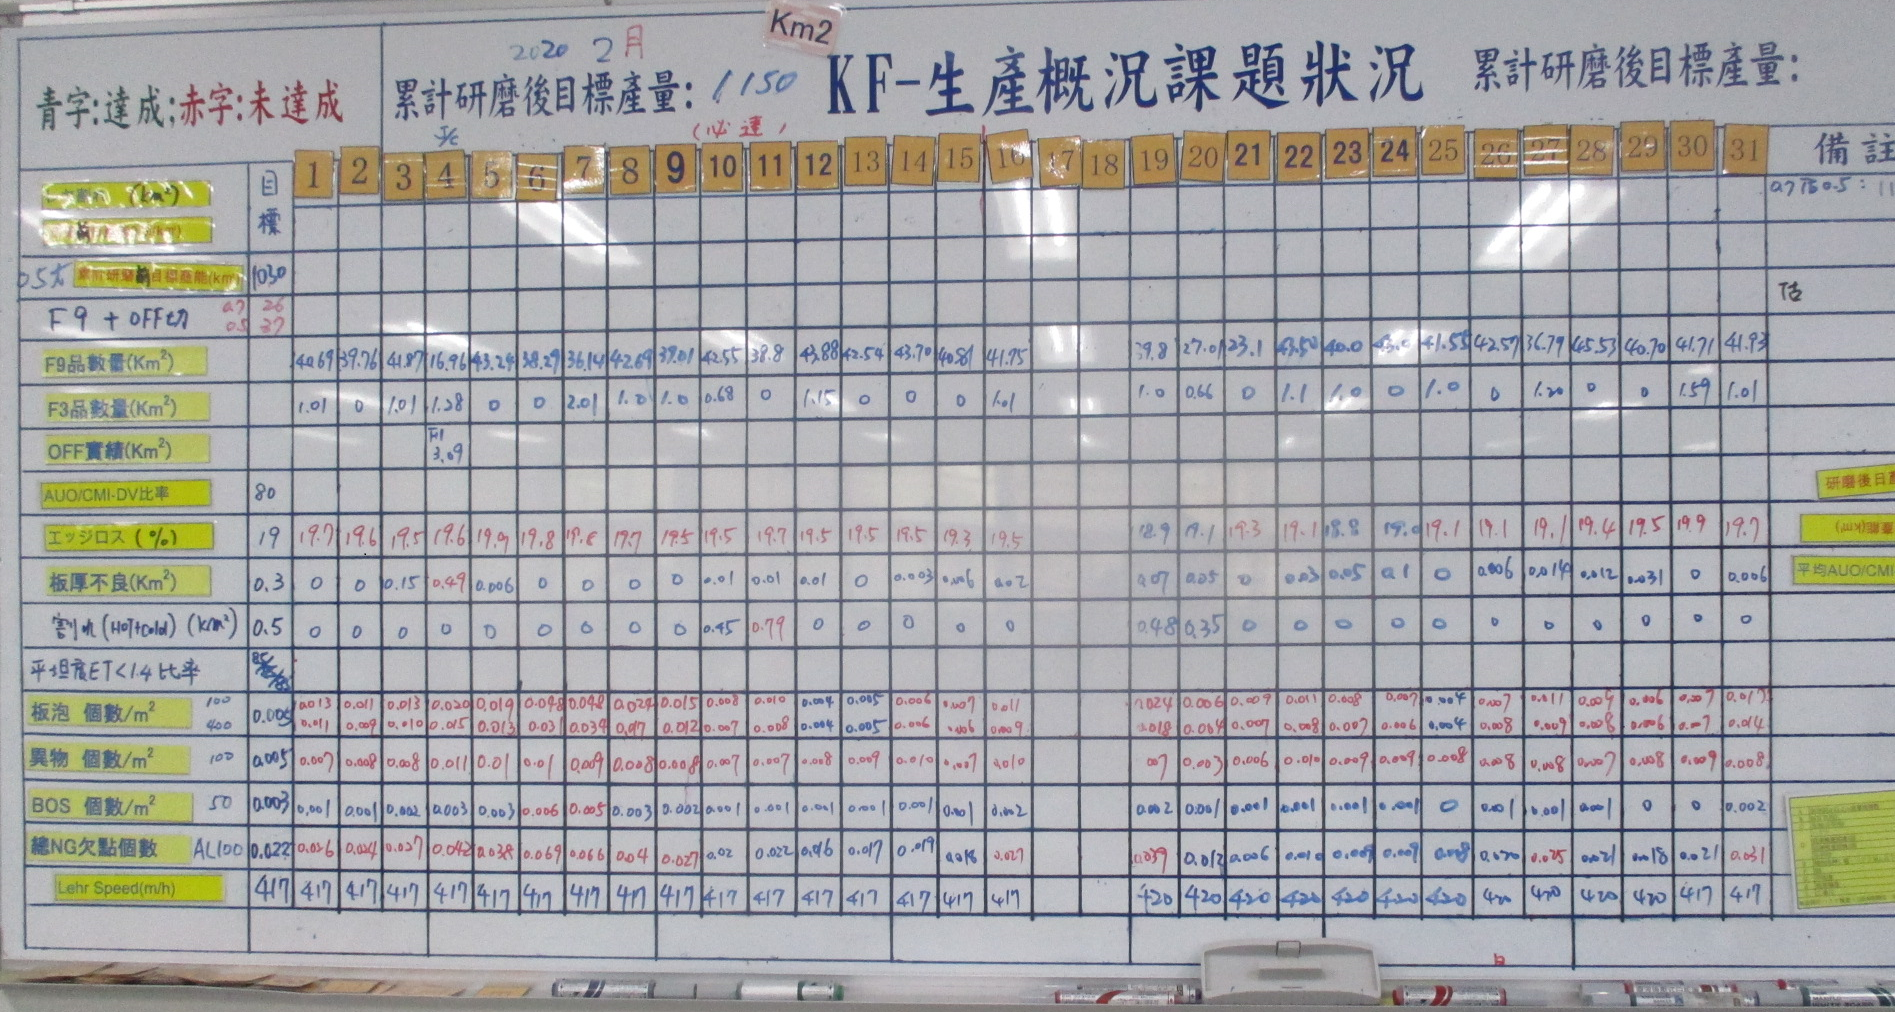 Km2
2020 2月
青字:達成;赤字:未達成
累計研磨後目標產量: 1150
KF-生產概況課題狀況
累計研磨後目標產量:
(必達)
目標 1 2 3 4 5 6 7 8 9 10 11 12 13 14 15 16 17 18 19 20 21 22 23 24 25 26 27 28 29 30 31 備註
(km²)
研磨前目標產能(km²) 1030
F9 + OFF切 0.7 26
0.5 37
F9品數量(Km²) 40.69 39.76 41.87 16.96 43.24 38.29 36.14 42.69 39.01 42.55 38.8 43.88 42.54 43.70 40.81 41.75 39.8 27.01 23.1 43.50 40.0 41.55 42.57 36.79 45.53 40.70 41.71 41.93
F3品數量(Km²) 1.01 0 1.01 1.28 0 0 2.01 1.0 1.0 0.68 0 1.15 0 0 0 1.01 1.0 0.66 0 1.1 1.0 0 1.0 0 1.20 0 0 1.59 1.01
OFF實績(Km²) 3.09
AUO/CMI-DV比率 80
研磨後日產
エッジロス(%) 19 19.7 19.6 19.5 19.6 19.9 19.8 19.8 19.7 19.5 19.5 19.7 19.5 19.5 19.5 19.3 19.5 18.9 19.1 19.3 19.1 18.8 19.0 19.1 19.1 19.1 19.4 19.5 19.9 19.7
板厚不良(Km²) 0.3 0 0 0.15 0.49 0.006 0 0 0 0 0.01 0.01 0.01 0 0.003 0.006 0.02 0.07 0.05 0 0.03 0.05 0.1 0 0.006 0.014 0.012 0.031 0 0.006 平均AUO/CMI
割れ(HOT+Cold)(Km²) 0.5 0 0 0 0 0 0 0 0 0 0.45 0.79 0 0 0 0 0 0.48 0.35 0 0 0 0 0 0 0 0 0 0 0
平坦度ET<1.4比率
板泡 個數/m² 100 0.005 0.013 0.011 0.013 0.020 0.019 0.048 0.048 0.024 0.015 0.008 0.010 0.004 0.005 0.006 0.007 0.011 0.024 0.006 0.009 0.011 0.008 0.007 0.004 0.007 0.011 0.009 0.006 0.007 0.017
400 0.011 0.009 0.010 0.015 0.013 0.031 0.034 0.017 0.012 0.007 0.008 0.004 0.005 0.006 0.006 0.009 0.018 0.004 0.007 0.008 0.007 0.006 0.004 0.008 0.009 0.008 0.006 0.007 0.014
異物 個數/m² 100 0.005 0.007 0.008 0.008 0.011 0.01 0.01 0.009 0.008 0.008 0.007 0.007 0.008 0.009 0.010 0.007 0.010 0.003 0.006 0.010 0.009 0.009 0.008 0.008 0.008 0.007 0.008 0.009 0.008
BOS 個數/m² 50 0.003 0.001 0.001 0.002 0.003 0.003 0.006 0.005 0.003 0.002 0.001 0.001 0.001 0.001 0.001 0.001 0.002 0.002 0.001 0.001 0.001 0.001 0.001 0 0.001 0.001 0.001 0 0 0.002
總NG欠點個數 AL100 0.022 0.026 0.024 0.027 0.042 0.038 0.069 0.066 0.04 0.027 0.02 0.022 0.016 0.017 0.019 0.018 0.027 0.039 0.012 0.006 0.010 0.009 0.009 0.008 0.020 0.025 0.021 0.018 0.021 0.031
Lehr Speed(m/h) 417 417 417 417 417 417 417 417 417 417 417 417 417 417 417 417 417 420 420 420 420 420 420 420 420 420 420 420 417 417